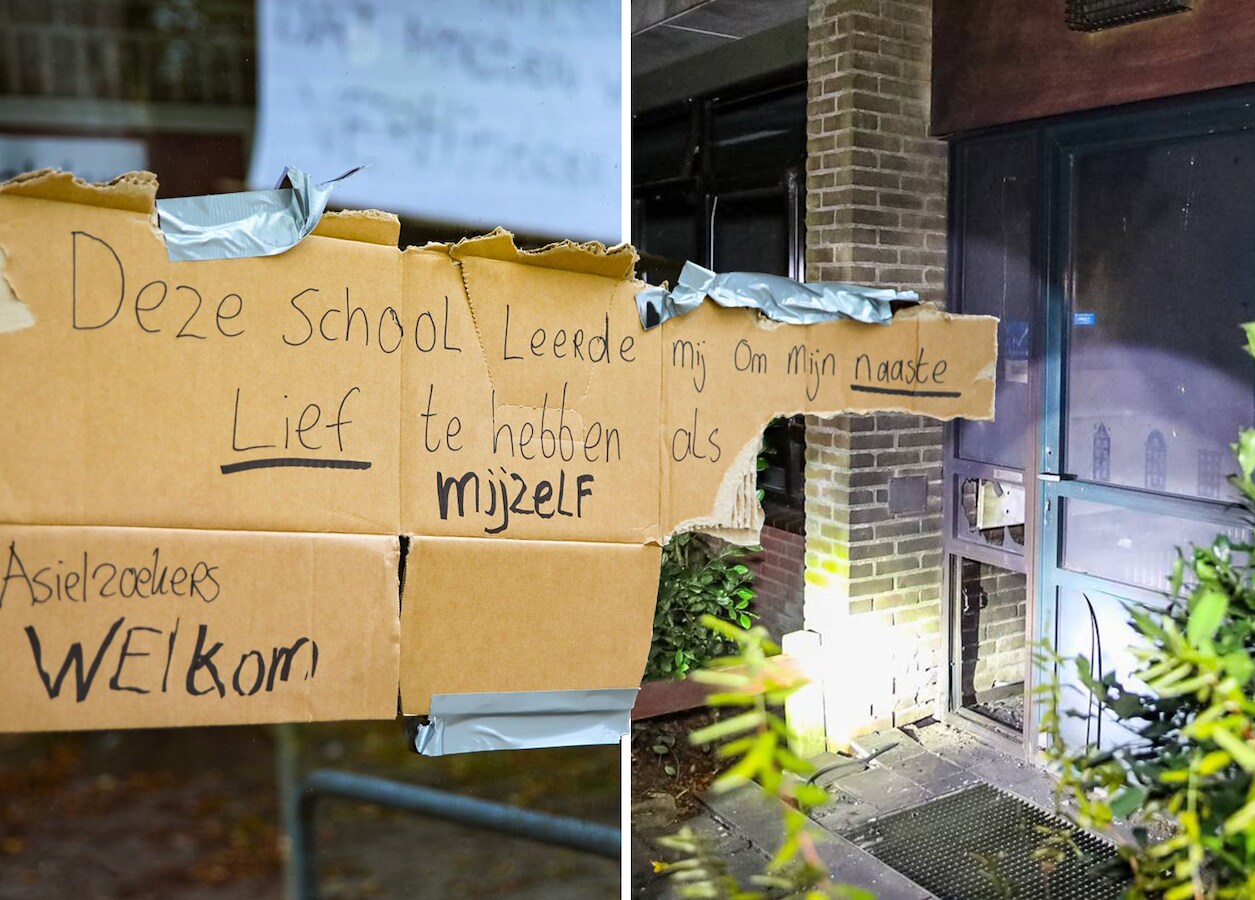 Deze School Leerde mij om mijn naaste
Lief te hebben als
mijzelf
Asielzoekers
WELKom